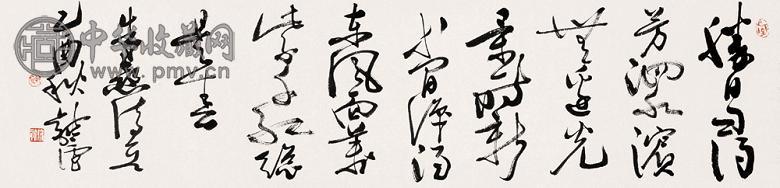 勝日尋
芳泗水濱
無邊光
景一時新
等閒識得
東風面萬
紫千紅總
是春
朱熹詩
乙酉秋
中华收藏网
www.pmv.cn